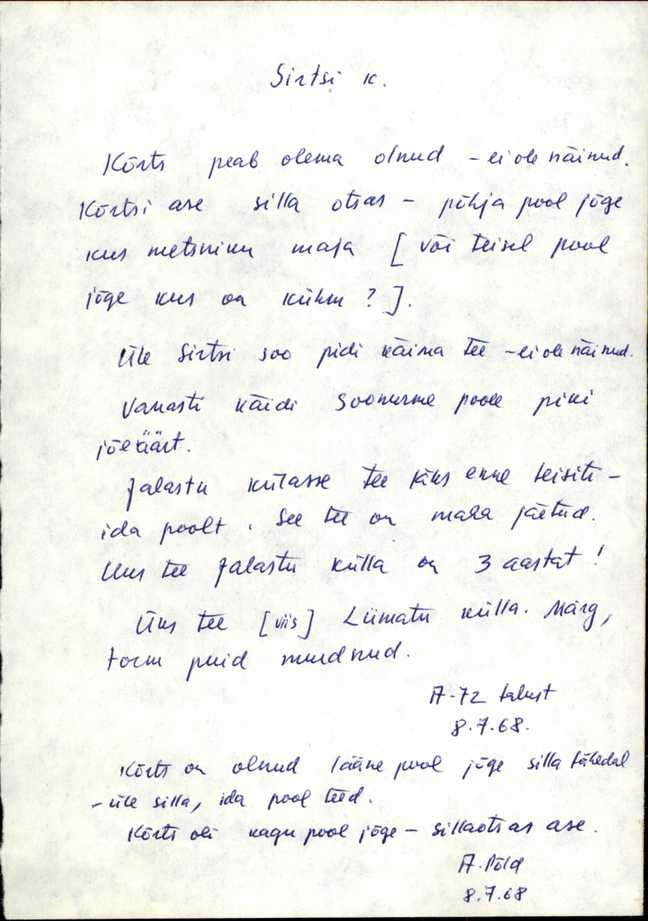 Sirtsi k.
Kõrts peab olema olnud – ei ole näinud.
Kõrtsi ase silla otsas – põhja pool jõge
kus metsniku maja [või teisel pool
jõge kus on kühm?].
Üle Sirtsi soo pidi käima tee – ei ole näinud.
Vanasti käidi Soonurme poole piki
jõeäärt.
Jalastu külasse tee käis enne teisiti –
ida poolt. See tee on maha jäetud.
Uus tee Jalastu külla on 3 aastat!
Üks tee [viis] Liimatu külla. Märg,
torm puid murdnud.
A-72 talust
8.7.68.
Kõrts on olnud lääne pool jõge silla lähedal
– üle silla, ida pool teed.
Kõrts oli kagu pool jõge – sillaotsas ase.
A. Põld
8.7.68